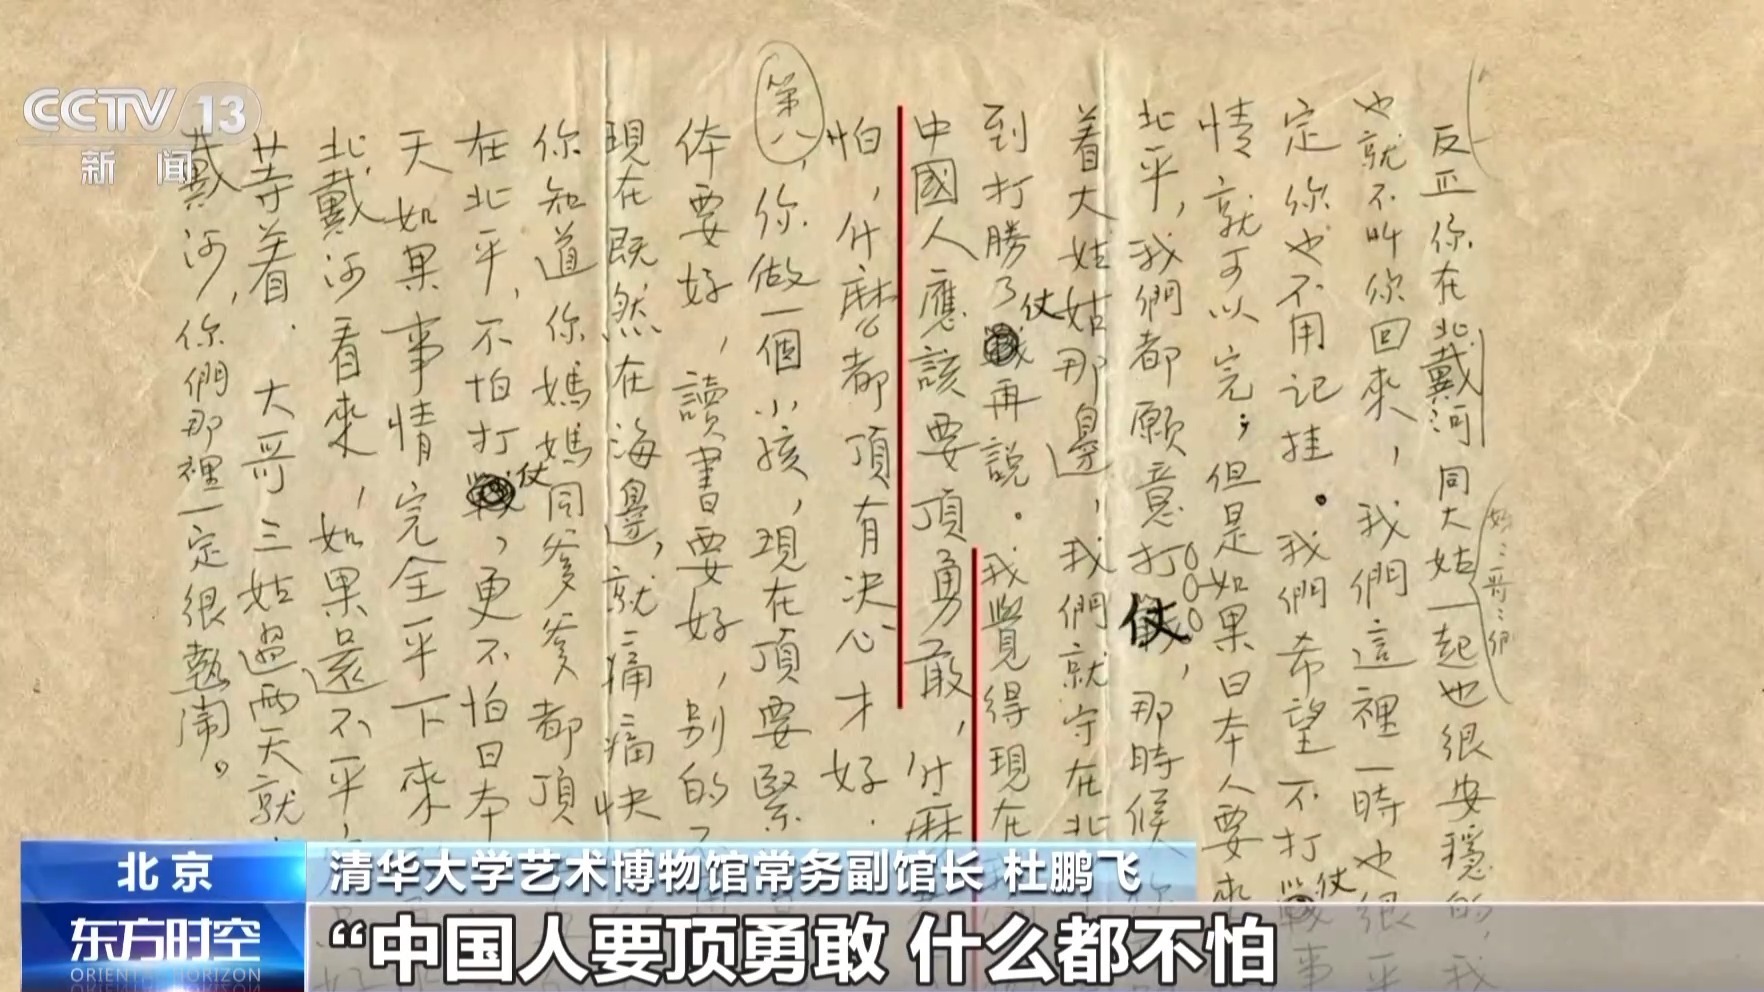 CCTV 13
新闻
反正你在北戴河同大姑一起也很安穩的,我
也就不叫你回來,我們這裡一時也很平
定你也不用记挂。我們希望不打仗事
情就可以完;但是如果日本人要來
北平,我們都願意打仗,那時候你
着大姑姑那邊,我們就守在北
到打勝了仗再說。我覺得現在我
中國人應該要頂勇敢,什麼
怕,什麼都頂有決心才好.
第八,你做一個小孩,現在頂要緊
体要好,讀書要好,別的
現在既然在海邊,就痛痛快
你知道你媽媽同爹爹都頂
在北平,不怕打仗,更不怕日本
天如果事情完全平下來
北戴河看來,如果還不平
若等着.大哥三姑過兩天就
戴河,你們那裡一定很熱鬧。
北京
清华大学艺术博物馆常务副馆长 杜鹏飞
东方时空
ORIENTAL HORIZON
“中国人要顶勇敢 什么都不怕